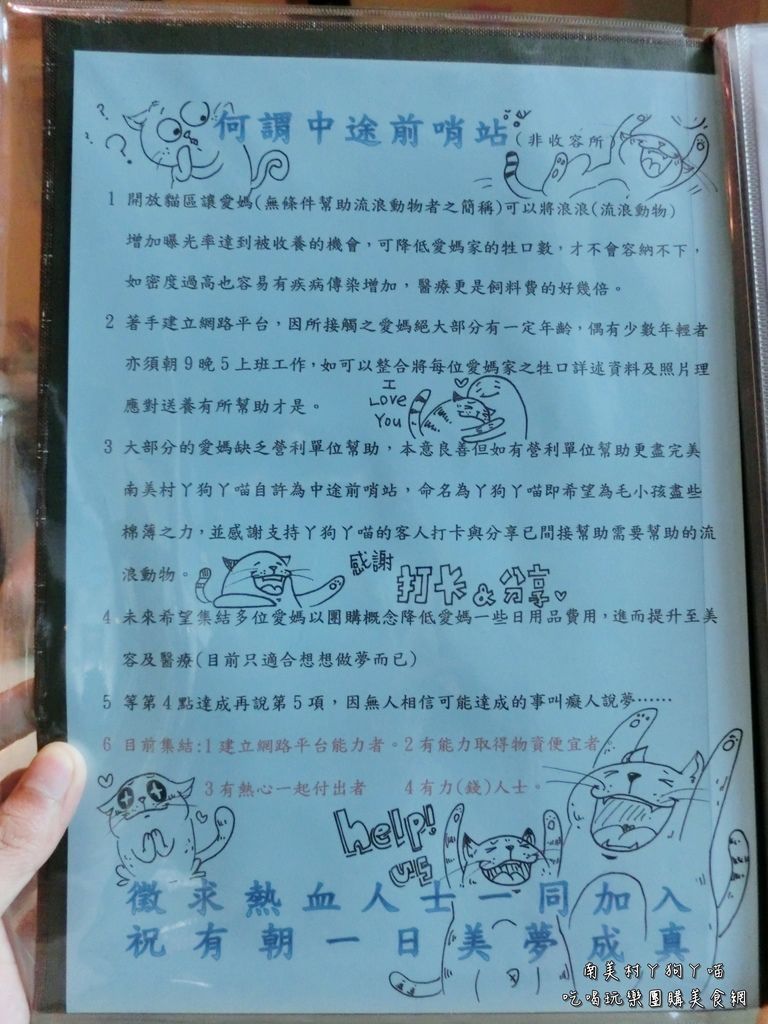 何謂中途前哨站(非收容所)
1 開放貓區讓愛媽(無條件幫助流浪動物者之簡稱)可以將浪浪(流浪動物)
增加曝光率達到被收養的機會，可降低愛媽家的牲口數，才不會容納不下，
如密度過高也容易有疾病傳染增加，醫療更是飼料費的好幾倍。
2 著手建立網路平台，因所接觸之愛媽絕大部分有一定年齡，偶有少數年輕者
亦須朝9晚5上班工作，如可以整合將每位愛媽家之牲口詳述資料及照片理
應對送養有所幫助才是。
I
Love
You
3 大部分的愛媽缺乏營利單位幫助，本意良善但如有營利單位幫助更盡完美
南美村丫狗丫喵自許為中途前哨站，命名為丫狗丫喵即希望為毛小孩盡些
棉薄之力，並感謝支持丫狗丫喵的客人打卡與分享已間接幫助需要幫助的流
浪動物。
感謝 打卡&分享
4 未來希望集結多位愛媽以團購概念降低愛媽一些日用品費用，進而提升至美
容及醫療(目前只適合想想做夢而已)
5 等第4點達成再說第5項，因無人相信可能達成的事叫癡人說夢……
6 目前集結:1建立網路平台能力者。2有能力取得物資便宜者
3有熱心一起付出者 4有力(錢)人士。
help!
us
徵求熱血人士一同加入
祝有朝一日美夢成真
南美村丫狗丫喵
吃喝玩樂團購美食網